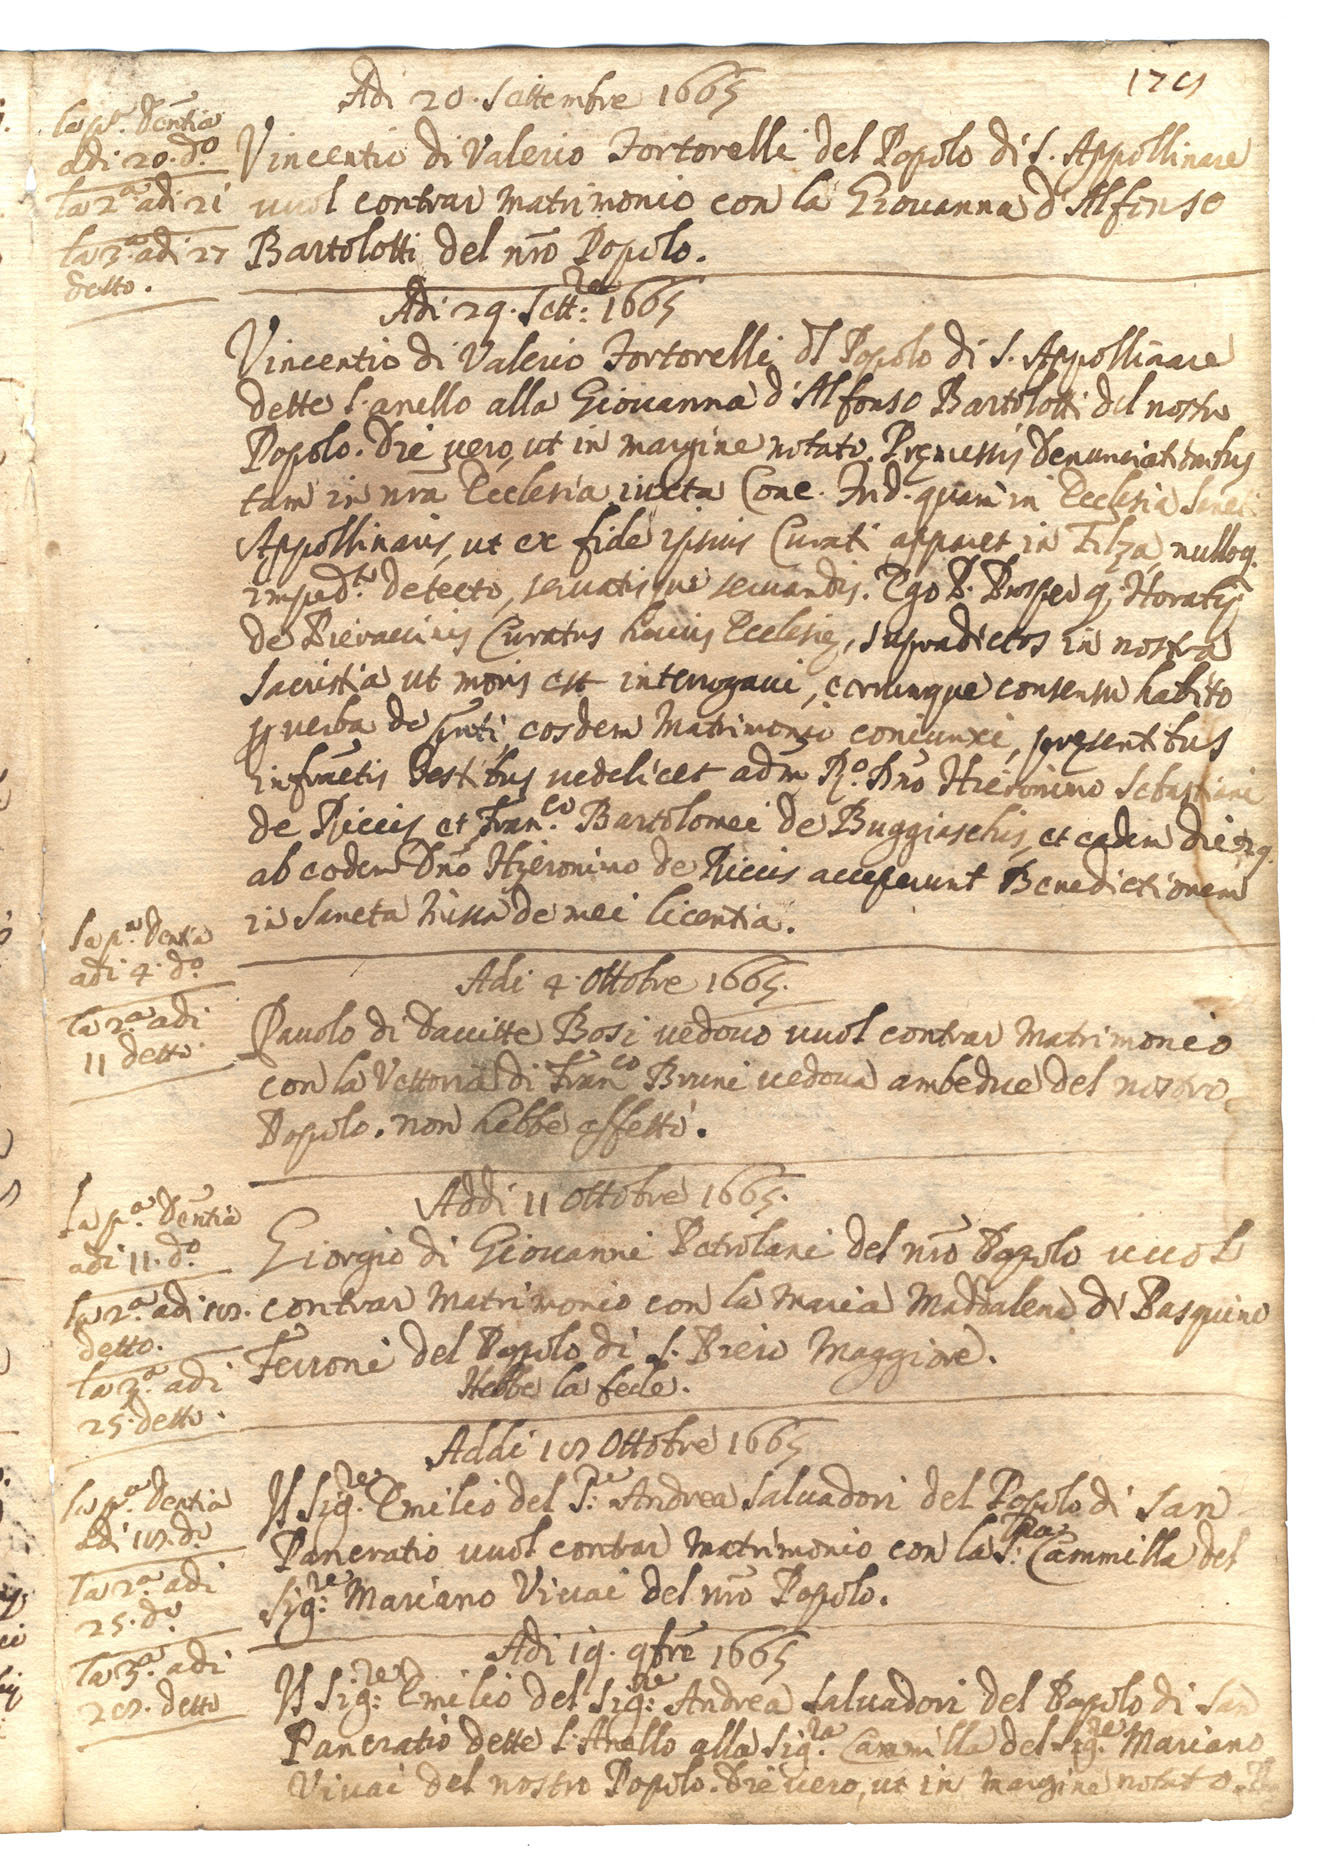 179
Adi 20. Settembre 1665
la pa. Dentia
adi 20. do
la 2a adi 21
la 3a adi 27
detto.
Vincentio di Valerio Tortorelli del Popolo di S. Appollinare
vuol contrar Matrimonio con la Giovanna d'Alfonso
Bartolotti del nro Popolo.
Adi 29. Settre: 1665
Vincentio di Valerio Tortorelli dl Popolo di S. Appollinare
dette l'anello alla Giovanna d'Alfonso Bartolotti del nostro
Popolo. Die vero, ut in margine notato. Pręmissis Denunciationibus
tam in nra Ecclesia iuxta Conc. Trid. quam in Ecclesia Sancti
Appollinaris, ut ex fide ipsius Curati apparet in Filza, nulloq.
imped.to detecto, servatisque servandis. Ego P. Prosper q. Horatij
de Pieraccinis Curatus huius Ecclesię, supradictos in nostra
Sacristia ut moris est interrogavi, eorumque consensu habito
p verba de pnti eosdem Matrimonio coniunxi, pręsentibus
infractis testibus videlicet adm Rdo. Dno Hieronimo Sebastiani
de Riccis, et Franco. Bartolomei de Buggiaschis, et eadem die 29.
ab eodem Dno Hieronimo de Riccis acceperunt Benedictionem
in Sancta Missa de mei licentia.
Adi 4. Ottobre 1665.
la pa. Dentia
adi 4. do.
la 2a. adi
11 detto.
Pavolo di Davitte Bosi vedovo vuol contrar Matrimonio
con la Vettoria di Franco Bruni vedova ambedue del nostro
Popolo. non hebbe effetto.
Addi 11 Ottobre 1665.
la pa. Dentia
adi 11. do
la 2a. adi 18.
detto.
la 3a. adi
25. detto.
Giorgio di Giovanni Petrolani del nro Popolo vuol
contrar Matrimonio con la Maria Maddalena di Pasquino
Ferroni del Popolo di S. Piero Maggiore.
Hebbe la fede.
Addi 18 Ottobre 1665
la pa. Dentia
adi 18. do
la 2a. adi
25. do
la 3a. adi
28. detto
Il Sigre. Emilio del Sre: Andrea Salvadori del Popolo di San
Pancratio vuol contrar Matrimonio con la S:ra Cammilla del
Sigre: Mariano Vivai del nro Popolo.
Adi 19. 9bre 1665
Il Sigre: Emilio del Sigre: Andrea Salvadori del Popolo di San
Pancratio dette l'Anello alla Sigra. Cammilla del Sigre. Mariano
Vivai del nostro Popolo. Die vero, ut in margine notato.